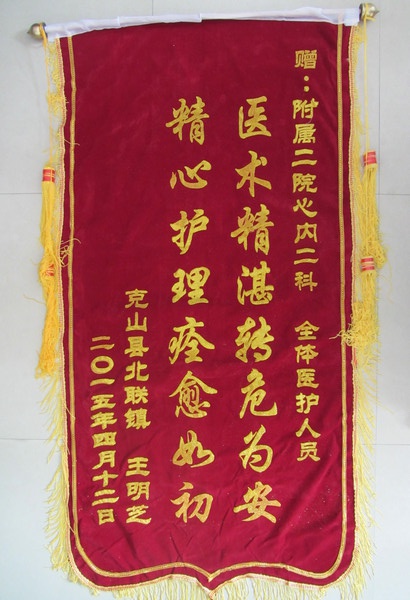 赠：附属二院心内二科 全体医护人员
医术精湛转危为安
精心护理痊愈如初
克山县北联镇 王明芝
二〇一五年四月十二日